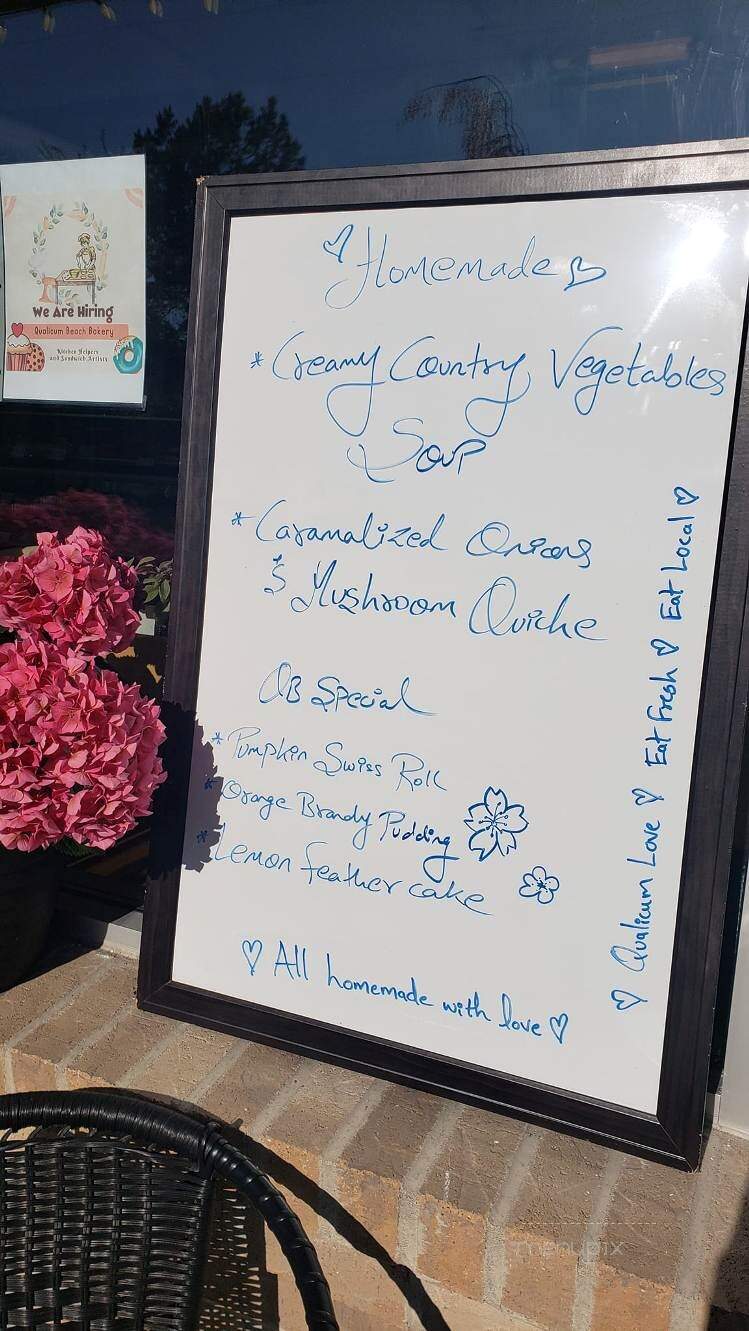 We Are Hiring
Qualicum Beach Bakery
Kitchen Helpers
and Sandwich Artists
♡ Homemade ♡
* Creamy Country Vegetables
Soup
* Caramalized Onions
& Mushroom Quiche
QB Special
* Pumpkin Swiss Roll
* Orange Brandy Pudding
* Lemon feather cake
♡ All homemade with love ♡
♡ Qualicum Love ♡ Eat Fresh ♡ Eat Local ♡
menupix